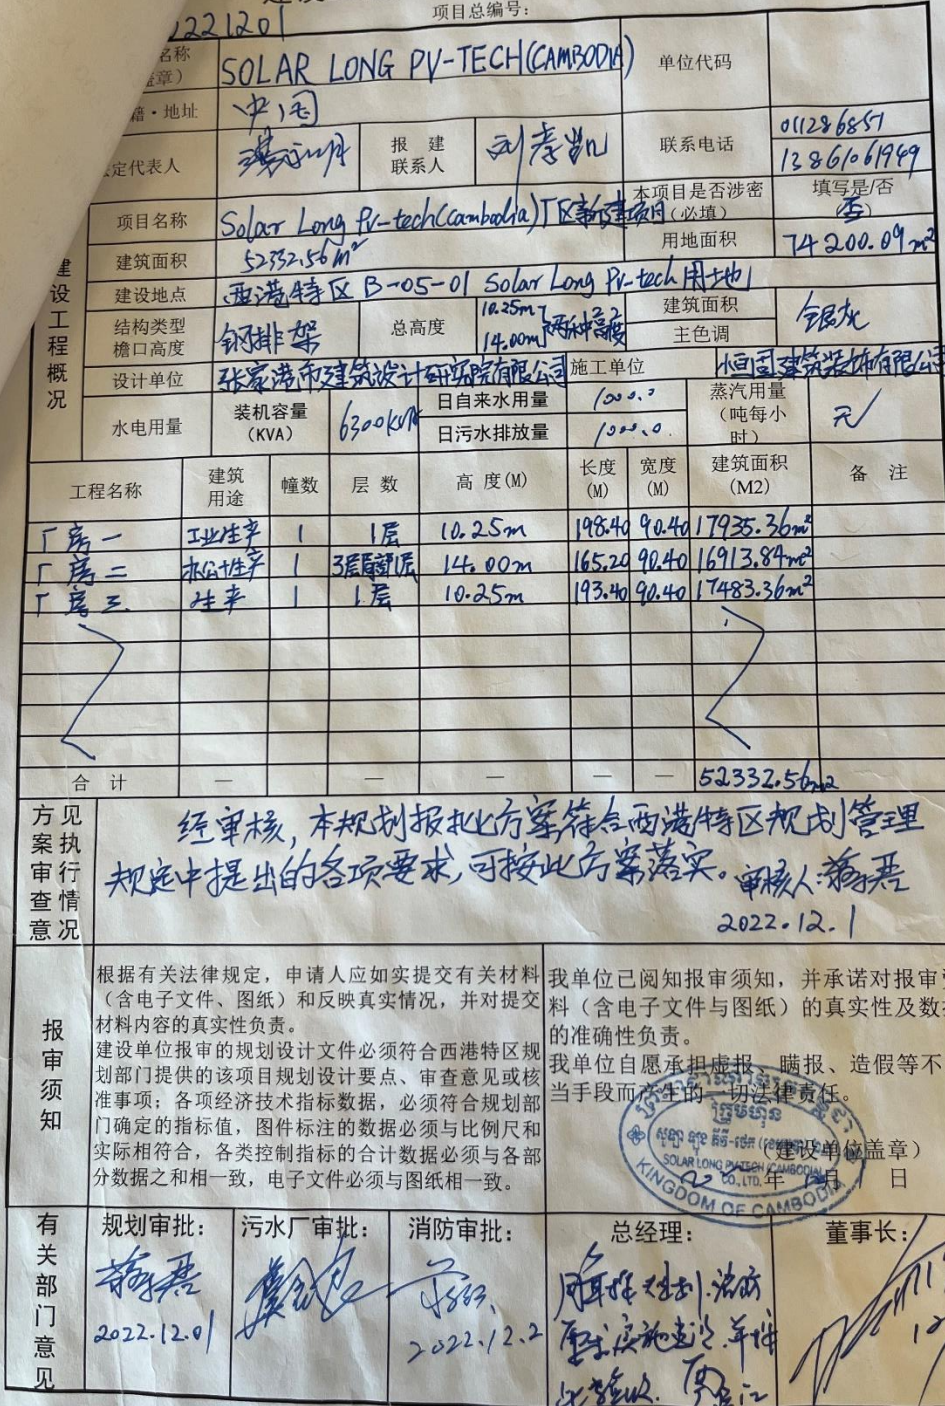 项目总编号：
221201
名称
SOLAR LONG PV-TECH(CAMBODIA)
单位代码
盖章）
籍·地址
中国
定代表人
报 建
联系人
刘孝凯
联系电话
011286851
13861061949
项目名称
Solar Long PV-tech(cambodia)厂区新建项目
本项目是否涉密
（必填）
填写是/否
否
建筑面积
52332.56m²
用地面积
74200.09m²
建设地点
西港特区 B-05-01 Solar Long PV-tech 用土地
结构类型
檐口高度
钢排架
总高度
10.25m~
14.00m
建筑面积
主色调
银灰
设计单位
张家港市建筑设计研究院有限公司
施工单位
恒固建筑装饰有限公司
建设工程概况
水电用量
装机容量
（KVA）
6300KVA
日自来水用量
1000.0
日污水排放量
1000.0
蒸汽用量
（吨每小
时）
无
工程名称
建筑
用途
幢数
层 数
高 度(M)
长度
(M)
宽度
(M)
建筑面积
(M2)
备 注
厂房一 工业生产 1 1层 10.25m 198.40 90.40 17935.36m²
厂房二 办公+生产 1 3层 14.00m 165.20 90.40 16913.84m²
厂房三 生产 1 1层 10.25m 193.40 90.40 17483.36m²
合 计 — — — — — 52332.56m2
方案审查意见执行情况
经审核，本规划报批方案符合西港特区规划管理
规定中提出的各项要求，可按此方案落实。审核人：
2022.12.1
报审须知
根据有关法律规定，申请人应如实提交有关材料
（含电子文件、图纸）和反映真实情况，并对提交
材料内容的真实性负责。
建设单位报审的规划设计文件必须符合西港特区规
划部门提供的该项目规划设计要点、审查意见或核
准事项；各项经济技术指标数据，必须符合规划部
门确定的指标值，图件标注的数据必须与比例尺和
实际相符合，各类控制指标的合计数据必须与各部
分数据之和相一致，电子文件必须与图纸相一致。
我单位已阅知报审须知，并承诺对报审
料（含电子文件与图纸）的真实性及数
的准确性负责。
我单位自愿承担虚报、瞒报、造假等不
当手段而产生的一切法律责任。
（建设单位盖章）
年 月 日
ក្រុមហ៊ុន
SOLAR LONG PV-TECH (CAMBODIA)
CO., LTD.
KINGDOM OF CAMBODIA
有关部门意见
规划审批：
2022.12.01
污水厂审批：
消防审批：
2022.12.2
总经理：
董事长：